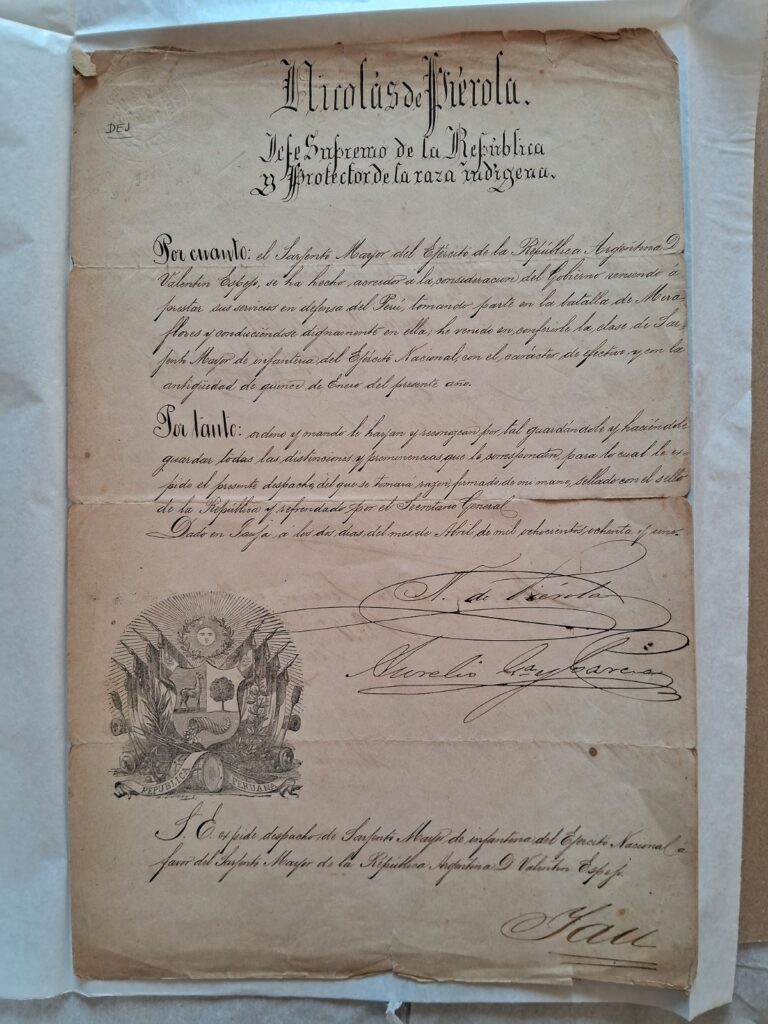 DEJ
Nicolás de Piérola.
Jefe Supremo de la República
y Protector de la raza indígena.
Por cuanto: el Sarjento Mayor del Ejército de la República Argentina D.
Valentin Espejo, se ha hecho acreedor a la consideracion del Gobierno viniendo a
prestar sus servicios en defensa del Perú, tomando parte en la batalla de Mira
flores y conduciéndose dignamente en ella; he venido en conferirle la clase de Sar-
jento Mayor de infantería del Ejército Nacional, con el carácter de efectivo y con la
antigüedad de quince de Enero del presente año.
Por tanto: ordeno y mando le hayan y reconozcan por tal guardándole y haciéndole
guardar todas las distinciones y preeminencias que le corresponden, para lo cual le ex-
pide el presente despacho, del que se tomará razon, firmado de mi mano, sellado con el sello
de la República y refrendado por el Secretario General
Dado en Jauja a los dos dias del mes de Abril de mil ochocientos ochenta y uno.
N. de Piérola
Aurelio Ga. y García
REPUBLICA PERUANA
S. E. expide despacho de Sarjento Mayor de infantería del Ejército Nacional a
favor del Sarjento Mayor de la República Argentina D. Valentin Espejo.